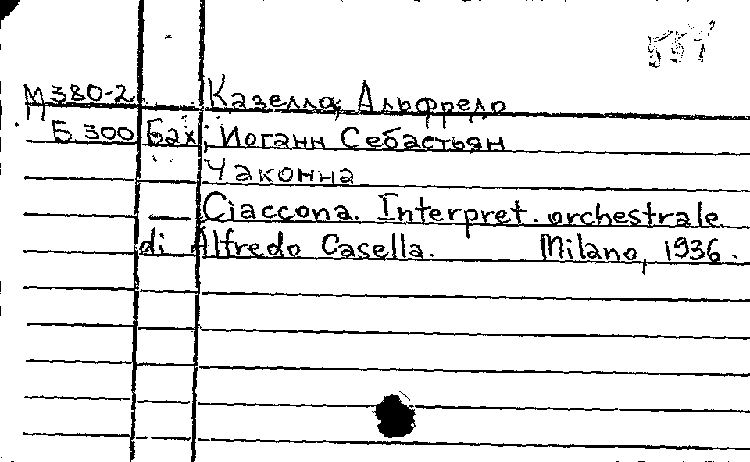 557
М380-2 Казелла, Альфредо
П
Б300 Бах, Иоганн Себастьян
Чаконна
— Ciaccona. Interpret. orchestrale
di Alfredo Casella. Milano, 1936.